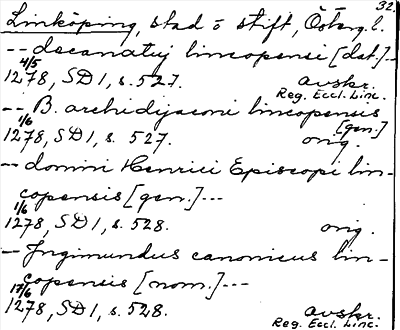 32.
Linköping, stad o stift, Österg. l.
-- decanatuj lincopensi [dat.]--
4/5
1278, SD 1, s. 527. avskr.
Reg. Eccl. Linc.
-- B. archidijaconi lincopensis
[gen.]
1/6
1278, SD 1, s. 527. orig.
-- domini Henrici Episcopi lin-
copensis [gen.]---
1/6
1278, SD 1, s. 528. orig.
-- Jngimundus canonicus lin-
copensis [nom.]---
17/6
1278, SD 1, s. 528. avskr.
Reg. Eccl. Linc.